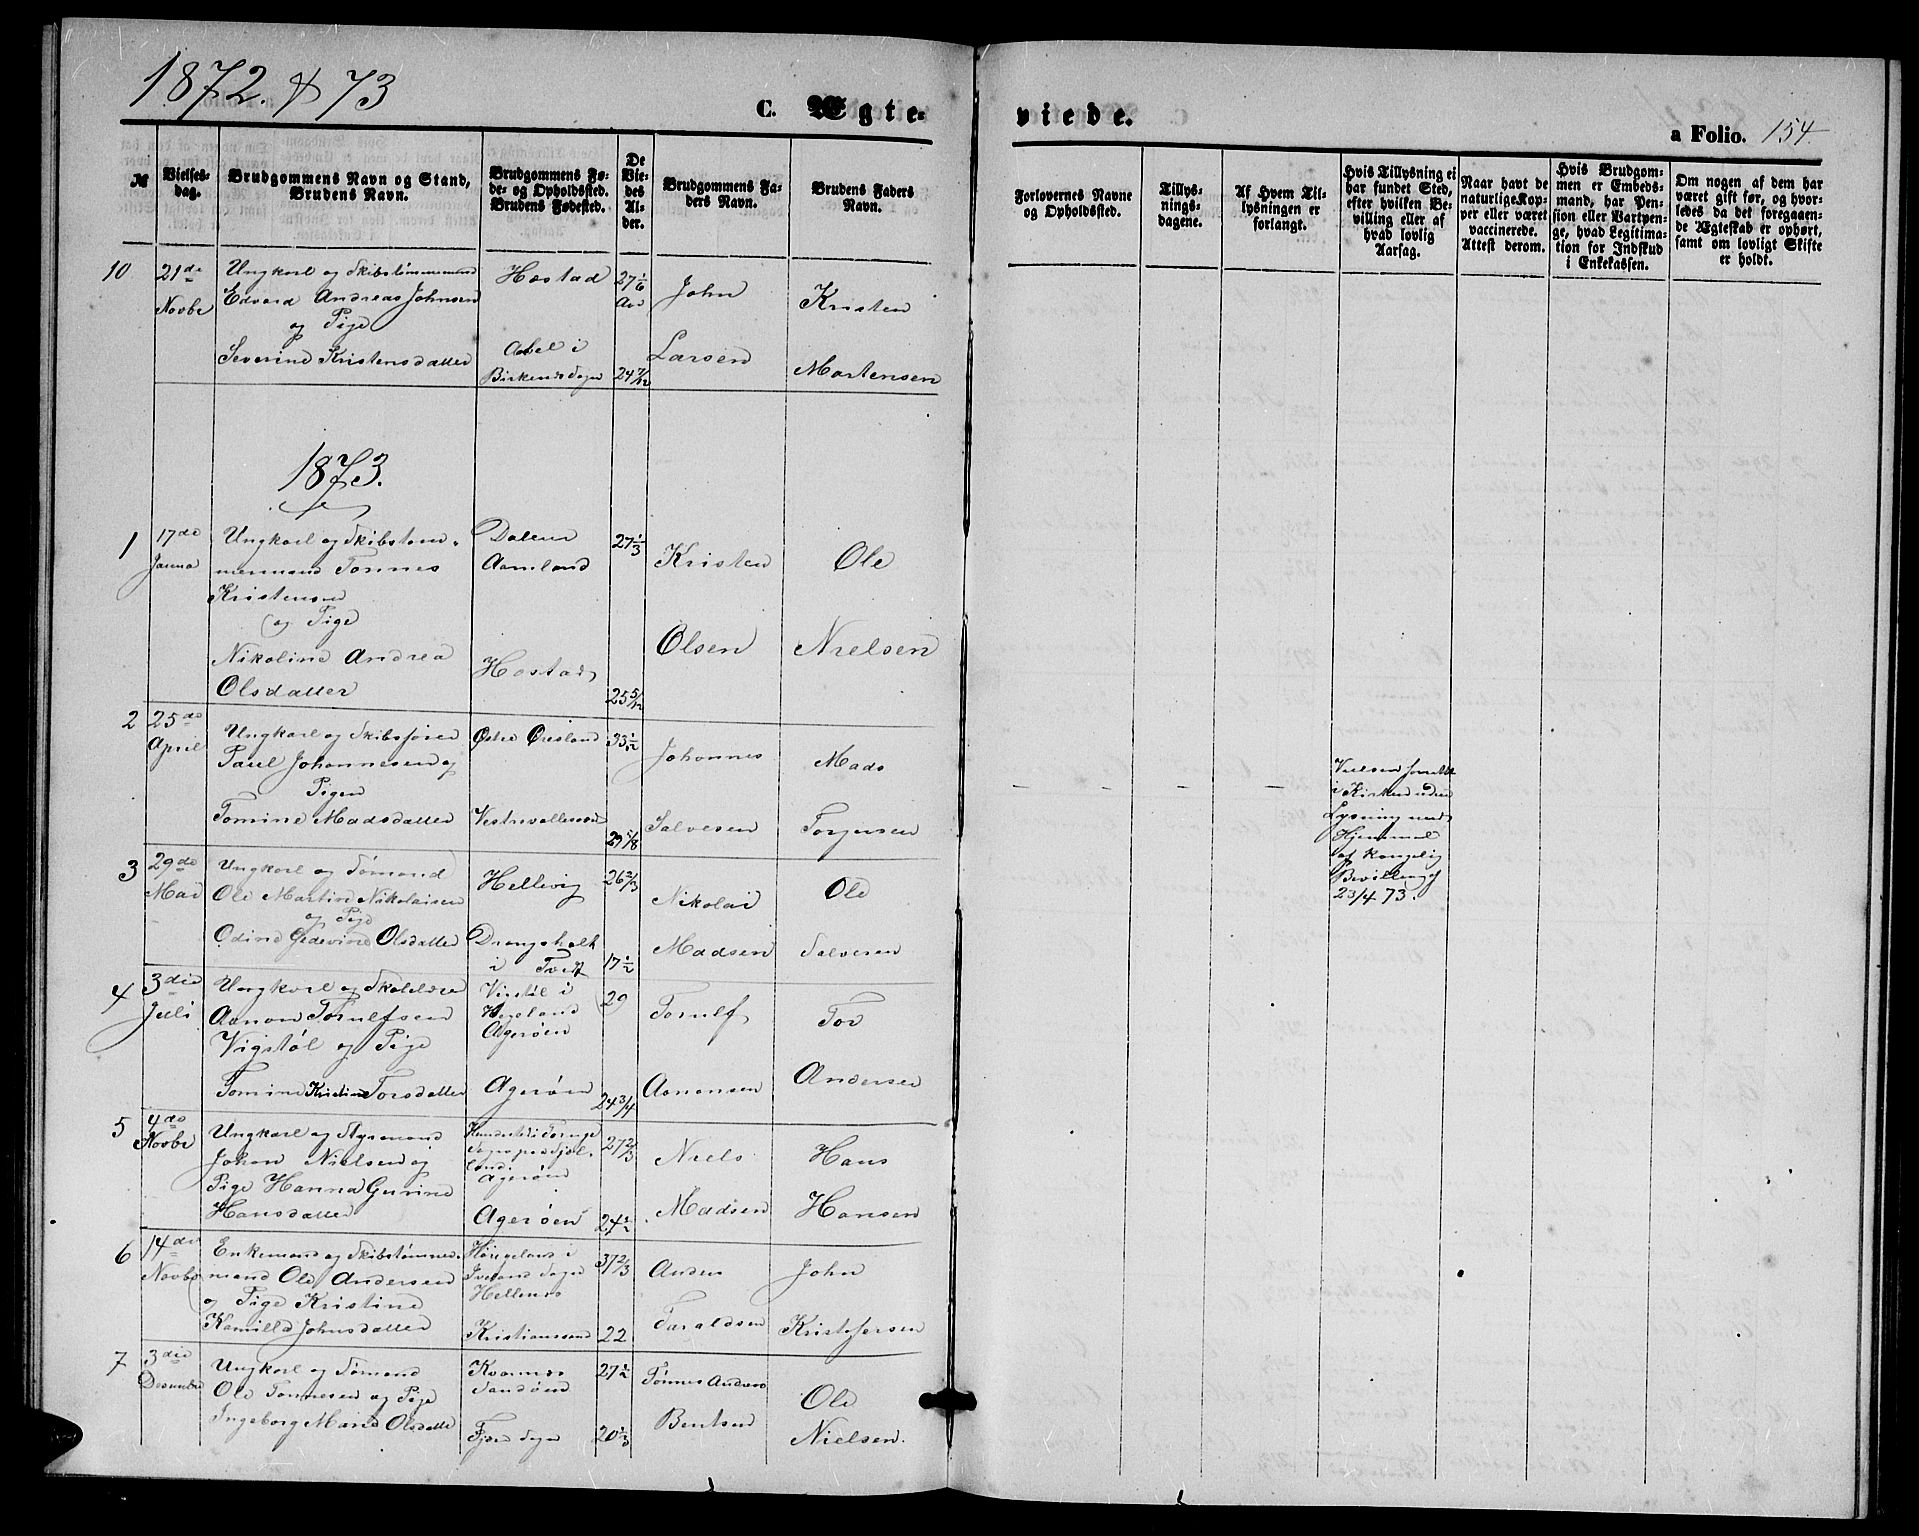 1872 & 73
C. Ægteviede.
a Folio. 154
№
Vielsesdag.
Brudgommens Navn og Stand,
Brudens Navn.
Brudgommens Fø-
de- og Opholdssted.
Brudens Fødested.
De
Vie-
des
Al-
der.
Brudgommens Fa-
ders Navn.
Brudens Faders
Navn.
Forlovernes Navne
og Opholdssted.
Tillys-
nings-
dagene.
Af Hvem Til-
lysningen er
forlangt.
Hvis Tillysning ei
har fundet Sted,
efter hvilken Be-
villing eller af
hvad lovlig
Aarsag.
Naar havt de
naturlige Kop-
per eller været
vaccinerede.
Attest derom.
Hvis Brudgom-
men er Embeds-
mand, har Pen-
sion eller Vartpen-
ge, hvad Legitima-
tion for Indskud
i Enkekassen.
Om nogen af dem har
været gift før, og hvor-
ledes da det foregaaen-
de Ægteskab er ophørt,
samt om lovligt Skifte
er holdt.
10
21de
Novbr
Ungkarl og Skibstømmermand
Edvard Andreas Johnsen
og Pige
Severine Kristensdatter
Høstad
Aabel i
Birkenæs Sogn
27 1/6
Aar
24 7/12
John
Larsen
Kristen
Mortensen
1873.
1
17de
Janua
Ungkarl og Skibstøm-
mermand Tønnes
Kristensen
og Pige
Nikoline Andrea
Olsdatter
Dalene
Aamland
Høstad
27 1/3
25 5/12
Kristen
Olsen
Ole
Nielsen
2
25de
April
Ungkarl og Skibsfører
Paul Johannesen og
Pigen
Tomine Madsdatter
Østre Øresland
Vestrevallesværd
33 1/2
29 5/8
Johannes
Salvesen
Mads
Torjussen
Vielsen forrettet
i Kirken uden
Lysning med
Hjemmel
af kongelig
Bevilling af
23/4 73.
3
29de
Mai
Ungkarl og Sømand
Ole Martin Nikolaisen
og Pige
Odine Gedevine Olsdatter
Hellevig
Drangsholt
i Tveit
26 2/3
17 1/2
Nikolai
Madsen
Ole
Salvesen
4
3die
Juli
Ungkarl og Skolelærer
Aanon Torulfsen
Vigstøl og Pige
Tomine Kristine Torsdatter
Vigstøl i
Vegusland
Agerøen
Agerøen
29
24 3/4
Torulf
Aanonsen
Tor
Andersen
5
4de
Novbr
Ungkarl og Styrmand
Johan Nielsen og
Pige Hanna Gurine
Hansdatter
Hundested i Torup
Sogn paa Sjæl-
land
Agerøen
Agerøen
27 2/3
24 1/2
Niels
Madsen
Hans
Hansen
6
14de
Novbr
Enkemand og Skibstømmer-
mand Ole Andersen
og Pige Kristine
Kamilla Johnsdatter
i
Iveland Sogn
Hellenæs
Kristianssand
37 2/3
22
Anders
Taraldsen
John
Kristofersen
7
3die
Desember
Ungkarl og Sømand
Ole Tønnesen og Pige
Ingeborg Marie Olsdatter
Kvannes
Sandøen
Fjære Sogn
27 1/2
20 1/3
Tønnes Andreas
Bentsen
Ole
Nielsen.